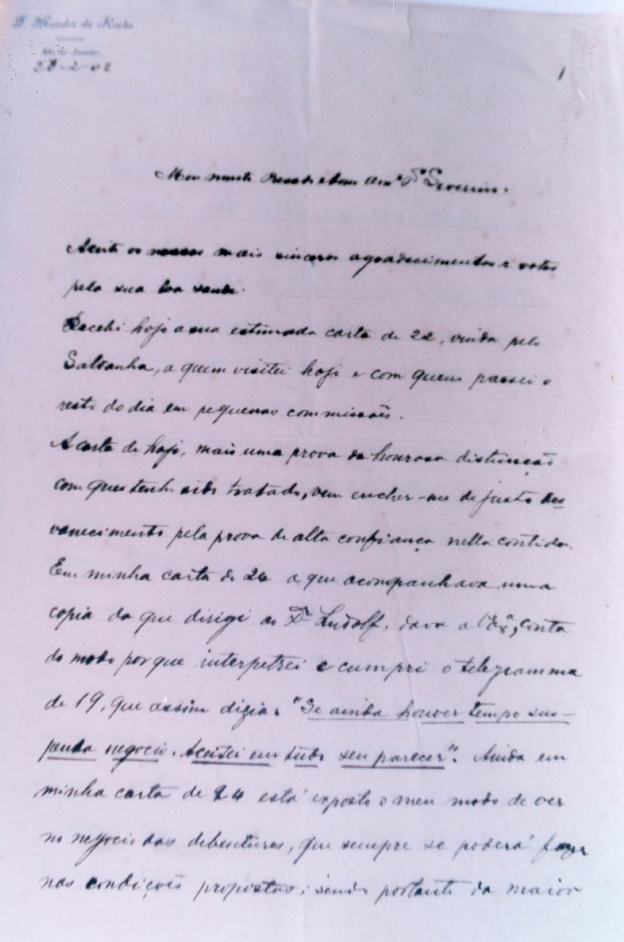 F. Mendes da Rocha
Rio de Janeiro
28-2-02
1
Meu muito Presado e bom Amº Dr Severino.
Aceite os nossos mais sinceros agradecimentos e votos
pela sua boa saude.
Recebi hoje a sua estimada carta de 22, vinda pelo
Saldanha, a quem visitei hoje e com quem passei o
resto do dia em pequenas commissões.
A carta de hoje, mais uma prova da honrosa distincção
com que tenho sido tratado, vem encher-me de justo des
vanecimento pela prova de alta confiança nella contida.
Em minha carta de 26 a que acompanhava uma
copia da que dirigi ao Dr Ludolf, dava a V. Exª, conta
do modo por que interpetrei e cumpri o telegramma
de 19, que assim dizia. "Se ainda houver tempo sus-
penda negocio. Aceitei em tudo seu parecer". Ainda em
minha carta de 24 está exposto o meu modo de ver
no negocio das debentures, que sempre se poderá fazer
nas condições propostas; sendo portanto da maior